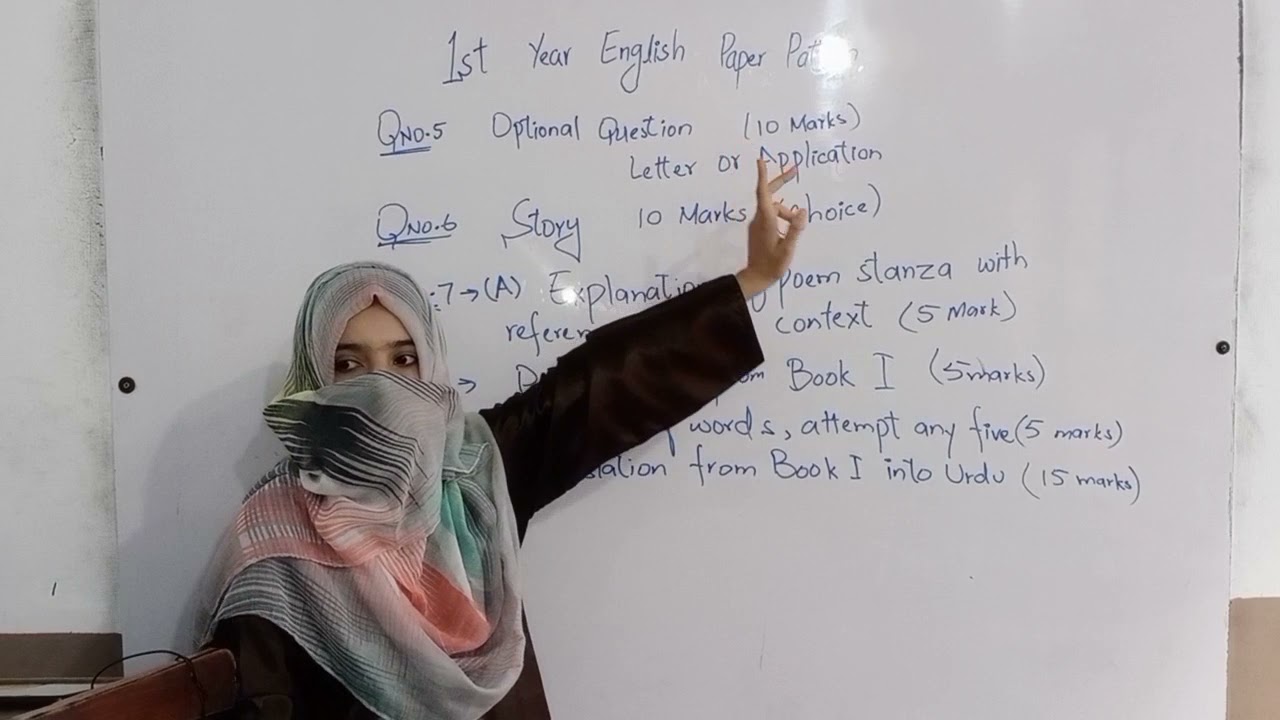 1st Year English Paper
QNO.5 Optional Question (10 Marks)
Letter or Application
QNO.6 Story 10 Marks (choice)
:7→(A) Explanation poem stanza with
context (5 Mark)
→ Book I (5 marks)
words, attempt any five (5 marks)
from Book I into Urdu (15 marks)